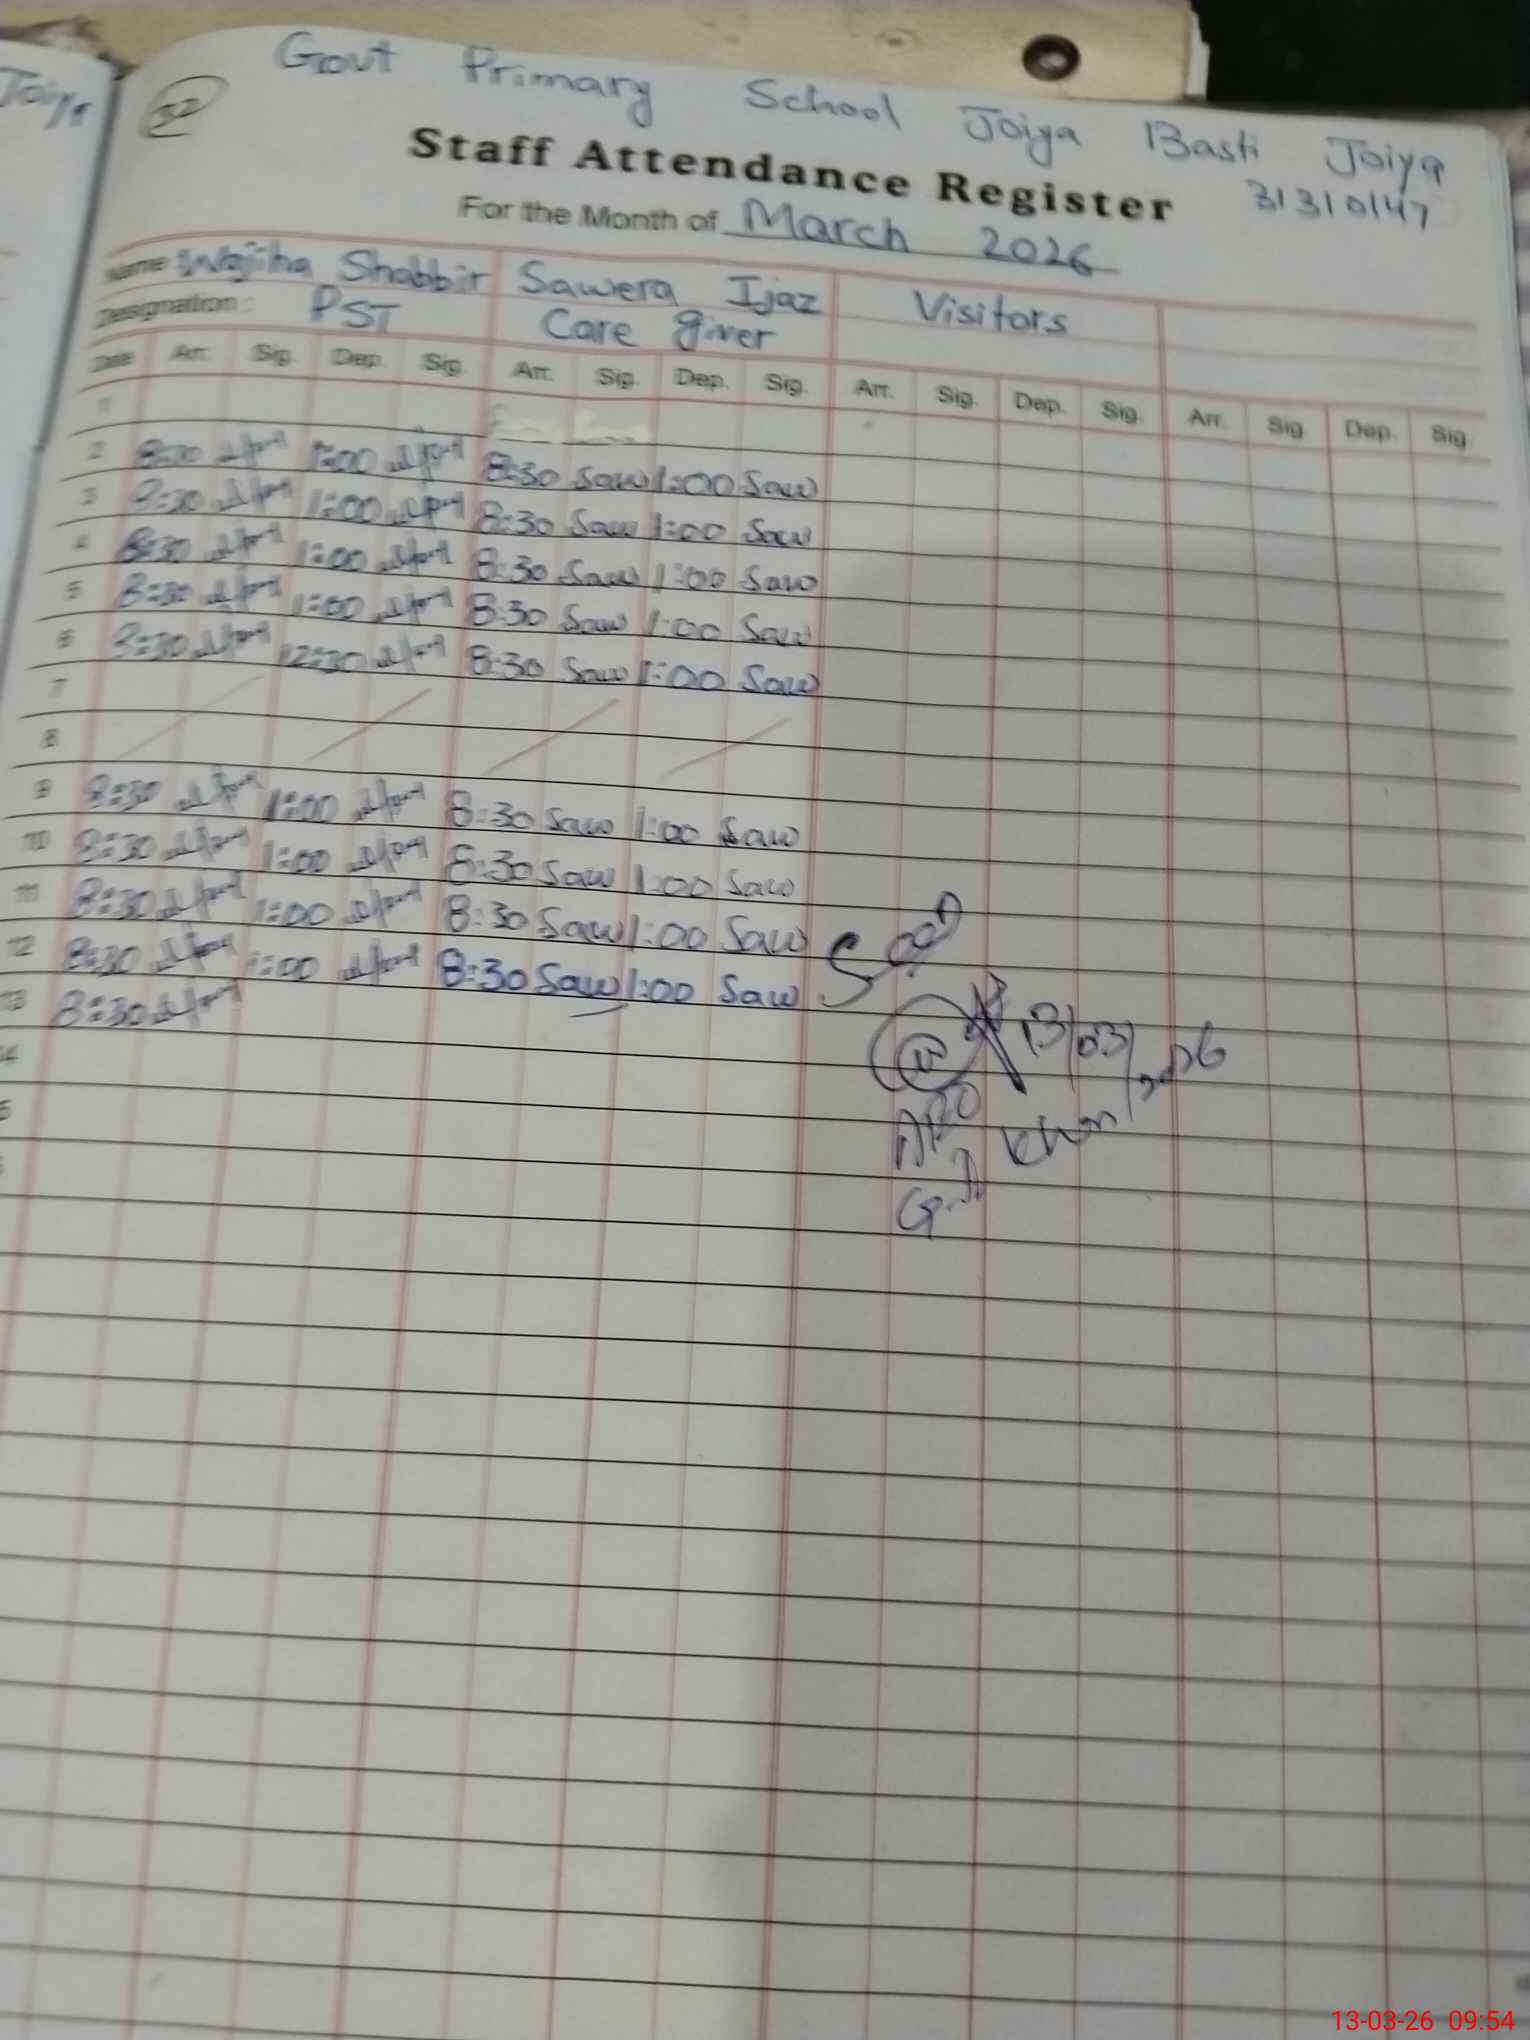 Joiya
32
Govt Primary School Joiya Basti Joiya
Staff Attendance Register 31310147
For the Month of March 2026
Name Wajiha Shabbir Sawera Ijaz Visitors
Designation: PST Care giver
Date Arr. Sig. Dep. Sig. Arr. Sig. Dep. Sig. Arr. Sig. Dep. Sig. Arr. Sig Dep. Sig.
1
2 8:30 1:00 8:30 Saw 1:00 Saw
3 8:30 1:00 8:30 Saw 1:00 Saw
4 8:30 1:00 8:30 Saw 1:00 Saw
5 8:30 1:00 8:30 Saw 1:00 Saw
6 8:30 12:30 8:30 Saw 1:00 Saw
7
8
9 8:30 1:00 8:30 Saw 1:00 Saw
10 8:30 1:00 8:30 Saw 1:00 Saw
11 8:30 1:00 8:30 Saw 1:00 Saw
12 8:30 1:00 8:30 Saw 1:00 Saw
13 8:30
13/03/2026
Khan
13-03-26 09:54